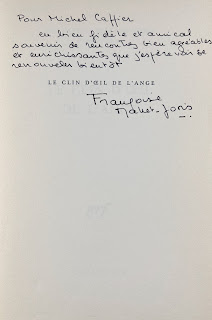 Pour Michel Caffier
en bien fidèle et amical
souvenir de rencontres bien agréables
et enrichissantes que j'espère voir se
renouveler bientôt
LE CLIN D'ŒIL DE L'ANGE
Françoise
Mallet-Joris